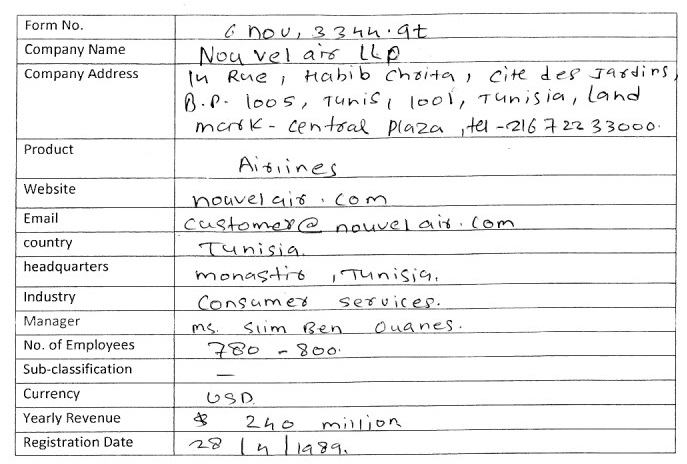 Form No. 6 nov, 3344.9t
Company Name Nouvel air LLP
Company Address In Rue, Habib Chrita, cite des Jardins,
B.P. 1005, Tunis, 1001, Tunisia, Land
mark - central plaza, tel - 216 722 33000.
Product Airlines
Website nouvelair.com
Email customer@nouvelair.com
country Tunisia.
headquarters monastir, Tunisia.
Industry Consumer services.
Manager ms. Slim Ben Ouanes.
No. of Employees 780 - 800.
Sub-classification —
Currency USD
Yearly Revenue $ 240 million
Registration Date 28/4/1989.